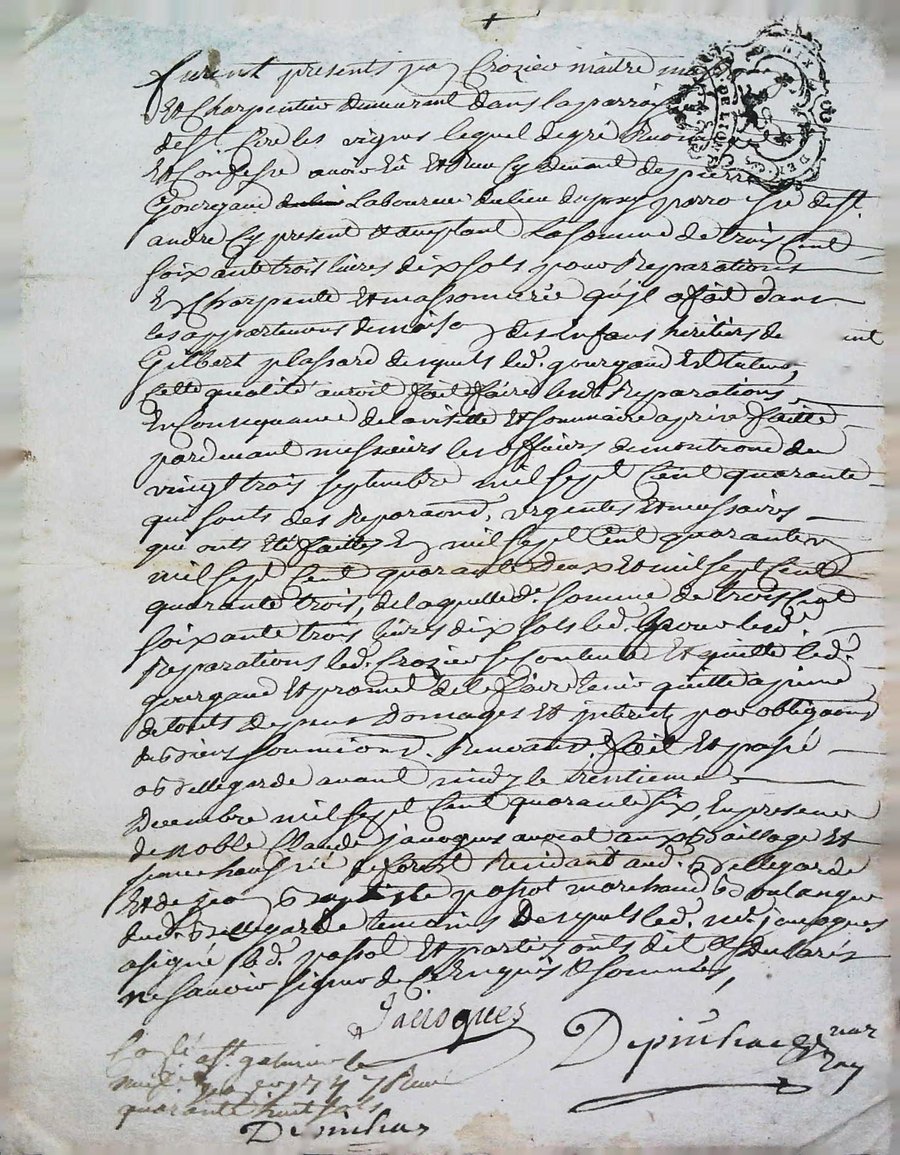 furent presents jean Crozier maitre
Et Charpentier demeurant dans la parroisse
de St. Cire les vignes lequel de gré
Et Confesse avoir Eu Et Receu Cy devant de pierre
Gourgaud Laboureur du lieu du parroisse de St.
andre Cy present Et aceptant La somme de trois Cent
soixante trois livres dix sols pour Reparations
En Charpente Et massonnerie qu'jl a fait dans
les appartemens de maison des Enfans heritiers de
Gilbert plassard desquels led. gourgaud Est tuteur,
Cette qualité auroit fait faire lesd. Reparations
En Consequance de la visitte Et sommaire aprise faitte
pardevant messieurs les officiers de montrond du
vingt trois septembre mil sept Cent quarante
qui sont des Reparaons. urgentes Et necessaires
qui onts Eté faittes En mil sept Cent quarante un
mil sept Cent quarante deux Et mil sept Cent
quarante trois, de laquelle de. somme de trois Cent
soixante trois livres dix sols led. pour lesd.
Reparations led. Crozier se contente Et quitte led.
gourgaud Et promet de le faire tenir quitte a peine
de touts Depens Domages Et jnterets par obligaons
de biens soumions. Renonaons. fait Et passé
a bellegarde avant midy le trentieme
Decembre mil sept Cent quarante six, En presence
de noble Claude jauoques avocat aux bailliage Et
senechaussée de forest Residant aud. bellegarde
Et de jean baptiste passot marchand boulanger
dud. bellegarde temoins Desquels led. mr. jauoques
a signé & led. passot Et parties onts dit & Declaré
ne savoir signer de Ce Enquis & sommés,
Jauoques
Depinhac
not. Ray
Conlé a St. galmier le
neuf janvier 1747 Receu
quarante huit sols
Depinhac